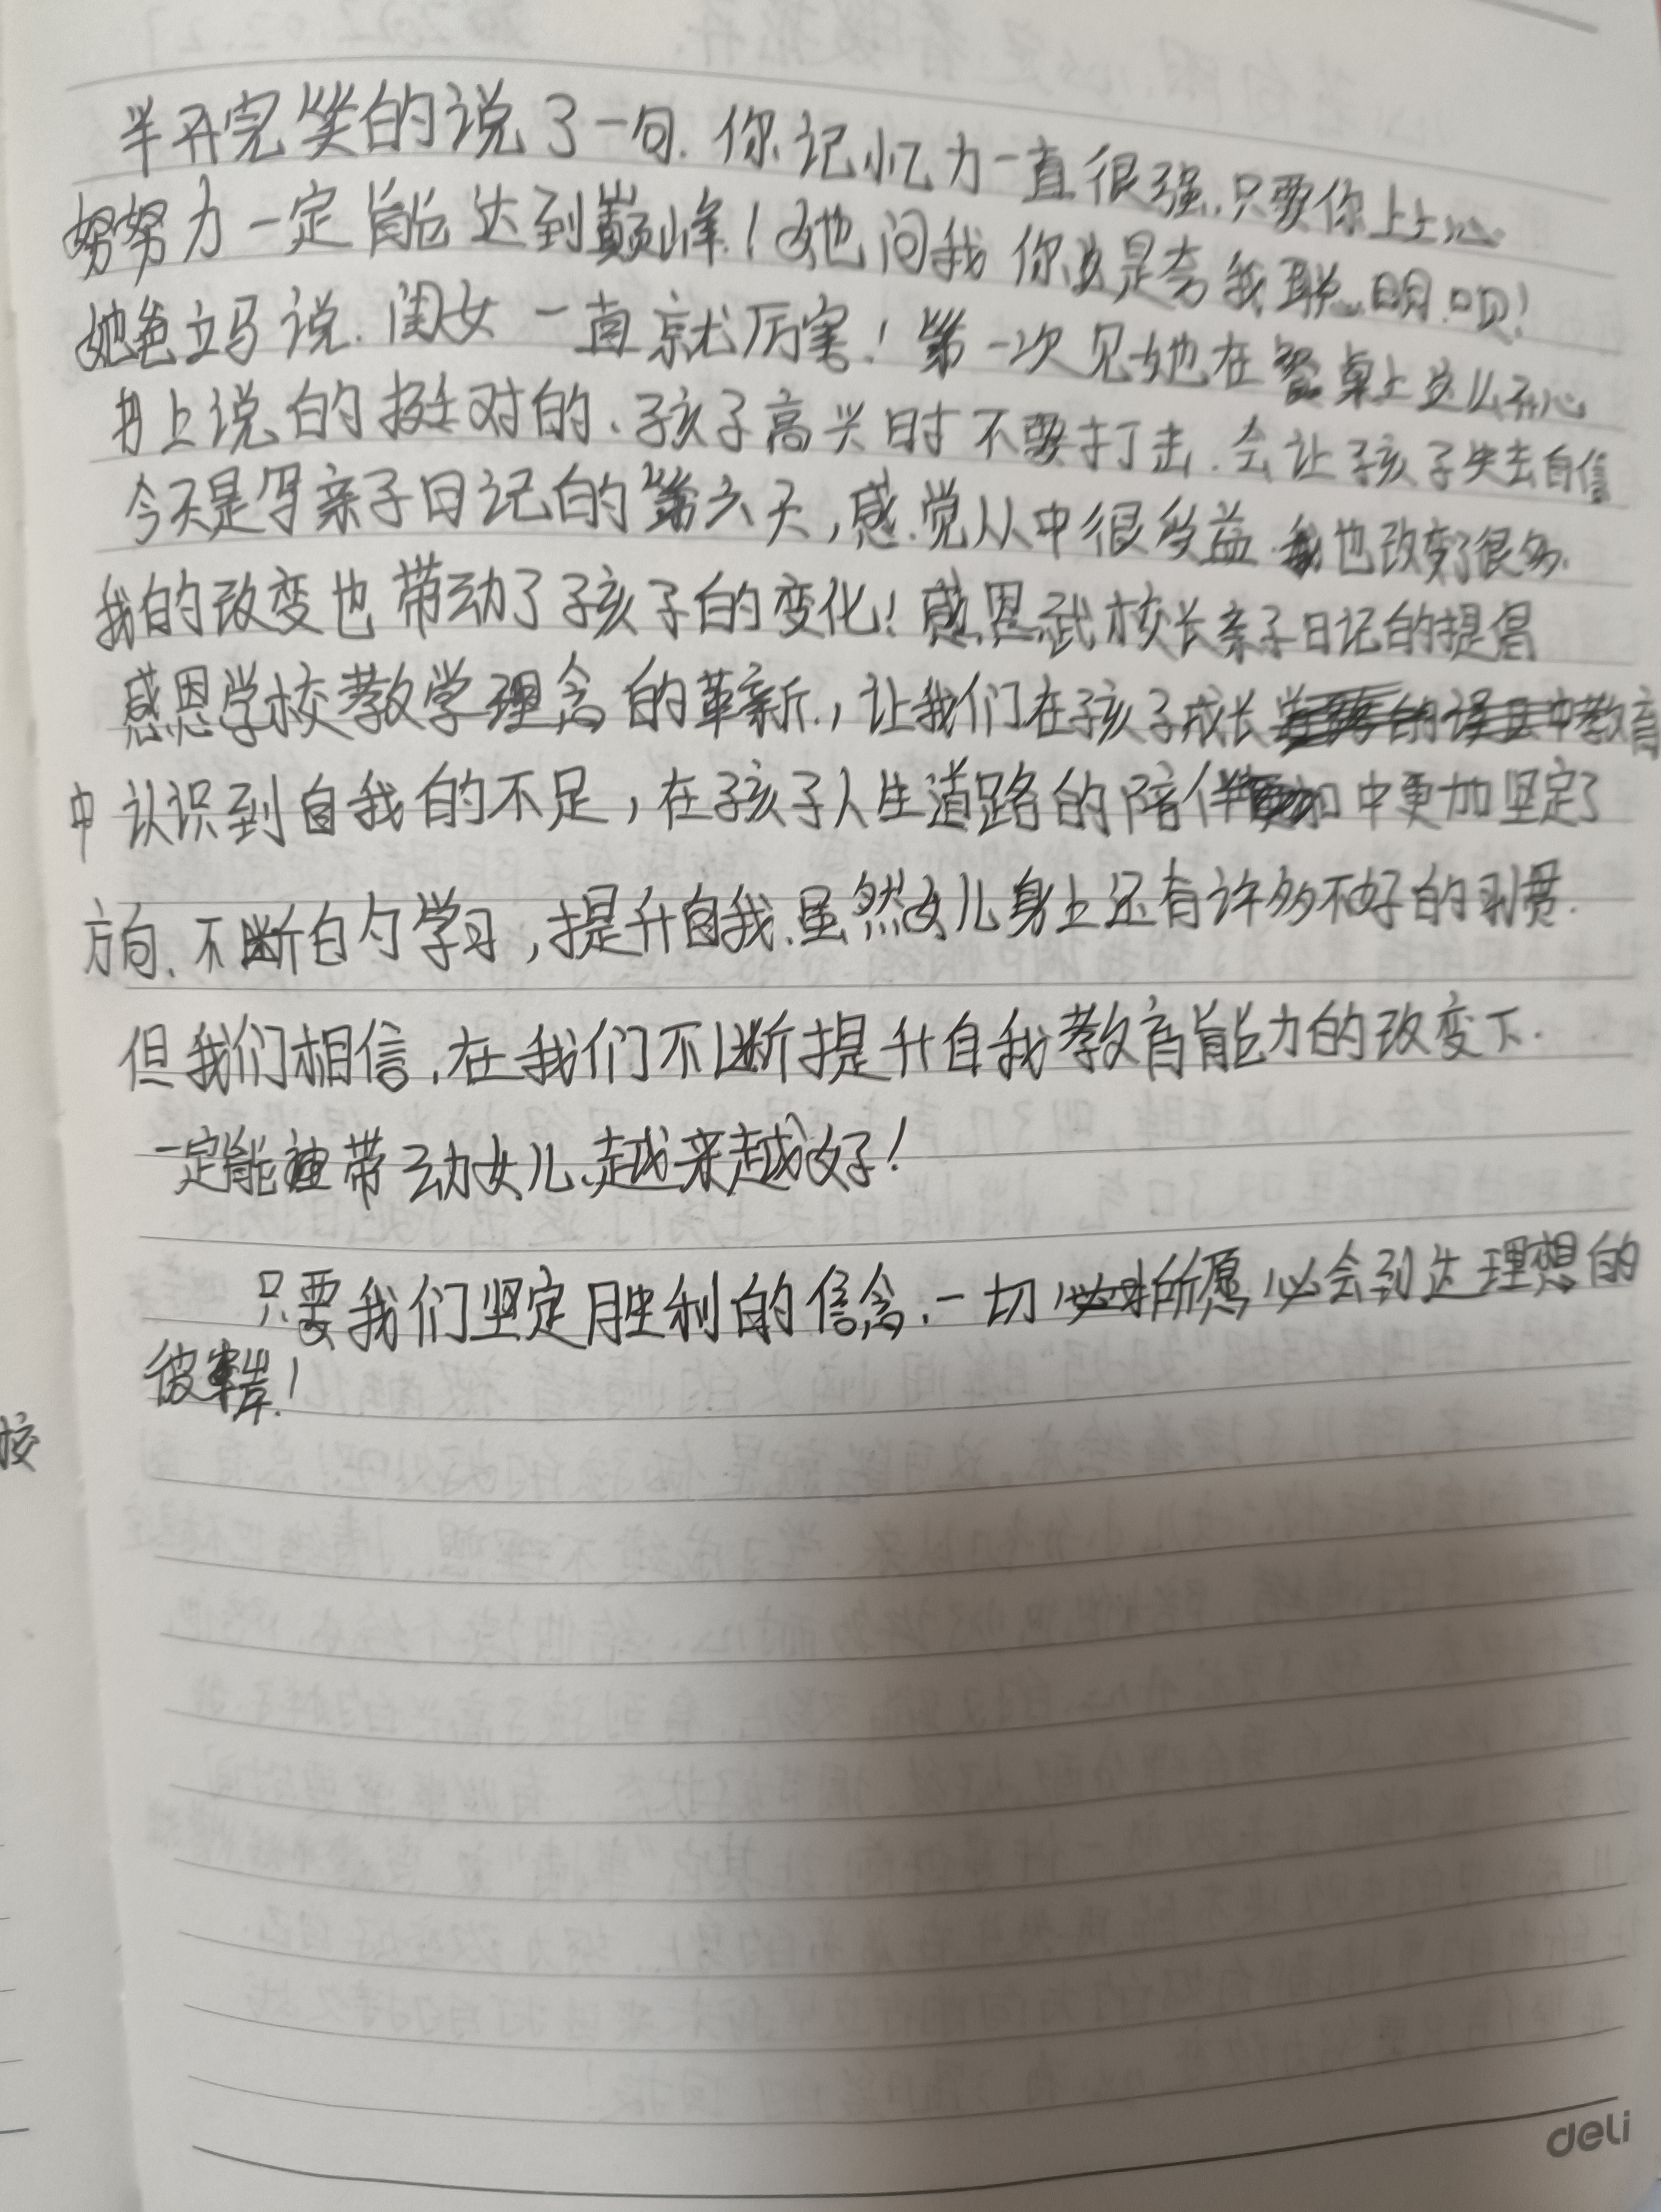 半开完笑的说了一句.你记忆力一直很强.只要你上上心.
努努力一定能达到巅峰!她问我你这是夸我聪明呗!
她爸立马说.闺女一直就厉害!第一次见她在餐桌上这么开心
书上说的挺对的、孩子高兴时不要打击.会让孩子失去自信
今天是写亲子日记的第六天,感觉从中很受益.我也改变了很多.
我的改变也带动了孩子的变化!感恩武校长亲子日记的提倡
感恩学校教学理念的革新.,让我们在孩子成长教育
中认识到自我的不足,在孩子人生道路的陪伴中更加坚定了
方向.不断的学习,提升自我.虽然女儿身上还有许多不好的习惯.
但我们相信.在我们不断提升自我教育能力的改变下.
一定能带动女儿.越来越好!
只要我们坚定胜利的信念.一切所愿必会到达理想的
彼岸!
校
deli